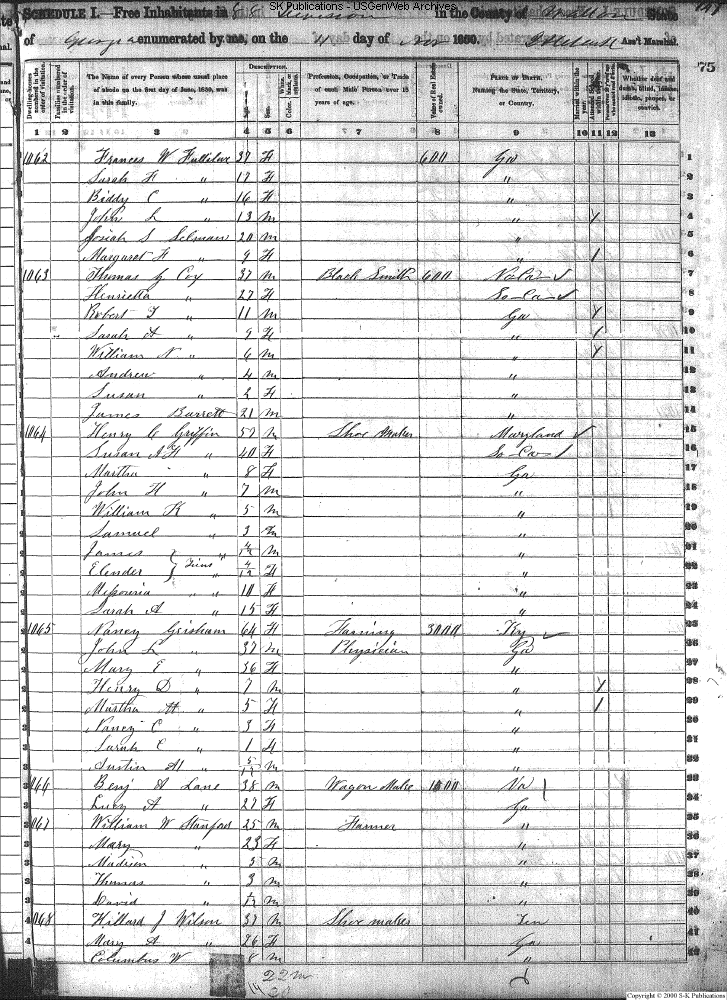 SK Publications - USGenWeb Archives
SCHEDULE I.—Free Inhabitants in Division in the County of Walton State
of Georgia enumerated by me, on the 4 day of Nov 1850. Ass't Marshal.
75
Dwelling-houses numbered in the order of visitation.
Families numbered in the order of visitation.
The Name of every Person whose usual place of abode on the first day of June, 1850, was in this family.
Description.
Age.
Sex.
Color.
Profession, Occupation, or Trade of each Male Person over 15 years of age.
Value of Real Estate owned.
Place of Birth. Naming the State, Territory, or Country.
Married within the year.
Attended School within the year.
Whether deaf and dumb, blind, insane, idiotic, pauper, or convict.
1 2 3 4 5 6 7 8 9 10 11 12 13
1062 Frances W 37 F 600 Ga 1
Sarah F " 17 F " 2
Biddy C " 16 F " 3
John L " 13 M " 4
Josiah S Selman 20 M " 5
Margaret F " 9 F " 1 6
1063 Thomas G Cox 37 M Black Smith 600 No Ca 7
Henrietta " 27 F So Ca 8
Robert T " 11 M Ga 9
Sarah A " 9 F " 1 10
William N " 6 M " 11
Andrew " 4 M " 12
Susan " 2 F " 13
James Barrett 21 M " 14
1064 Henry C Griffin 57 M Shoe Maker Maryland 15
Susan A H " 40 F So Ca 16
Martha " 8 F Ga 17
John H " 7 M " 18
William K " 5 M " 19
Samuel " 3 M " 20
James " 4/12 M " 21
Elender Twins " 4/12 F " 22
Missouria " 10 F " 23
Sarah A " 15 F " 24
1065 Nancy Grisham 64 F Farming 3000 Ky 25
John L " 37 M Physician Ga 26
Mary E " 36 F " 27
Henry D " 7 M " 28
Martha " 5 F " 1 29
Nancy C " 3 F " 30
Sarah E " 1 F " 31
Austin " 5/12 M " 32
1066 Benj A Lane 38 M Wagon Maker 1000 Va 33
Lucy A " 27 F Ga 34
1067 William W Stanford 25 M Farmer " 35
Mary " 23 F " 36
Madison " 5 M " 37
Thomas " 3 M " 38
David " M " 39
1068 Hillard J Wilson 37 M Shoe maker Ten 40
Mary A " 26 F Ga 41
Columbus W " 8 M " 42
22 m
Copyright © 2000 S-K Publications